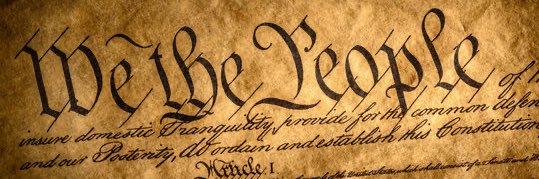 We the People of
insure domestic Tranquility, provide for the common defen
and our Posterity, do ordain and establish this Constitution
Article. I